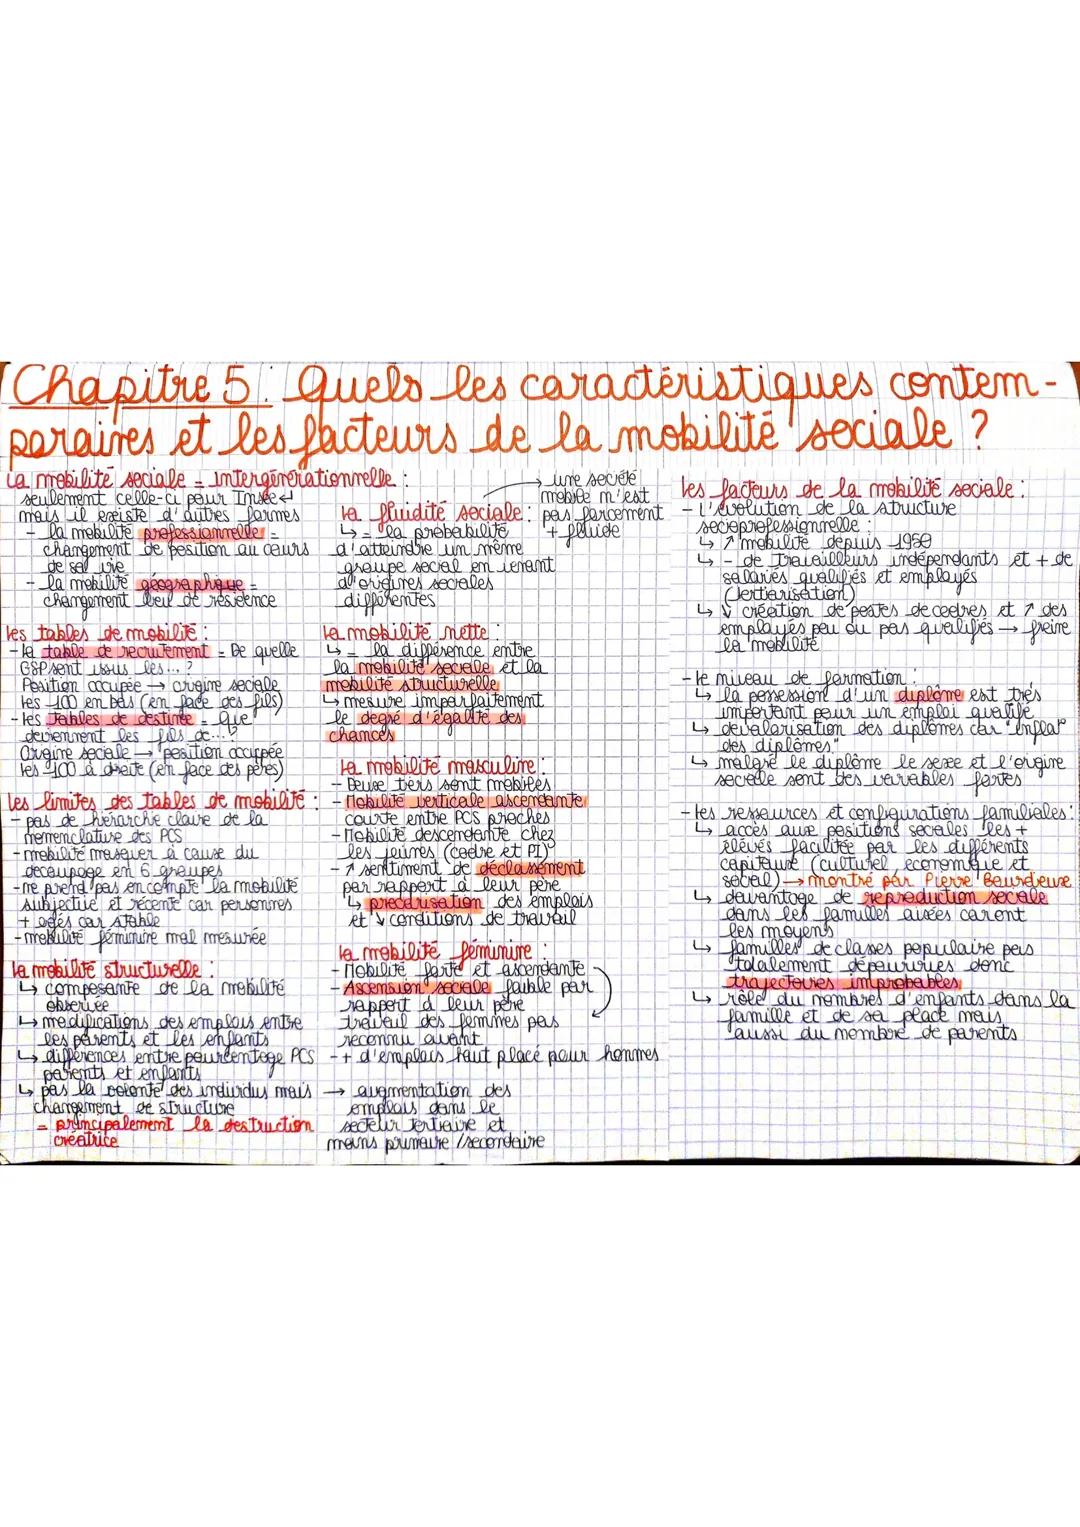 Chapitre 5 : Quels les caractéristiques contem-
poraines et les facteurs de la mobilité sociale ?
La mobilité sociale = intergénérationnelle :
seulement celle-ci pour Insee ↵
mais il existe d'autres formes
- la mobilité professionnelle =
changement de position au cours
de sa vie
- la mobilité géographique =
changement lieu de résidence
Les tables de mobilité :
- la table de recrutement = De quelle
GSP sont issus les... ?
Position occupée → origine sociale
Les 100 en bas (en face des fils)
- les tables de destinée = Que
deviennent les fils de... ?
Origine sociale → position occupée
les 100 à droite (en face des pères)
Les limites des tables de mobilité :
- pas de hiérarchie claire de la
nomenclature des PCS
- mobilité masquer à cause du
découpage en 6 groupes
- ne prend pas en compte la mobilité
subjective et récente car personnes
+ agés car stable
- mobilité féminine mal mesurée
La mobilité structurelle :
↳ composante de la mobilité
observée
↳ modifications des emplois entre
les parents et les enfants
↳ différences entre pourcentage PCS
parents et enfants
↳ pas la volonté des individus mais
changement de structure
= principalement la destruction
créatrice
→ une société
mobile n'est
pas forcement
+ fluide
La fluidité sociale :
↳ = la probabilité
d'atteindre un même
groupe social en venant
d'origines sociales
différentes
La mobilité nette :
↳ = la différence entre
la mobilité sociale et la
mobilité structurelle
↳ mesure imparfaitement
le degré d'égalité des
chances
La mobilité masculine :
- Deux tiers sont mobiles
- Mobilité verticale ascendante
courte entre PCS proches
- Mobilité descendante chez
les jeunes (cadre et PI)
- ↗ sentiment de déclassement
par rapport à leur père
↳ précarisation des emplois
et ↘ conditions de travail
La mobilité féminine :
- Mobilité forte et ascendante
- Ascension sociale faible par
rapport à leur père
travail des femmes pas
reconnu avant
- + d'emplois haut placé pour hommes
→ augmentation des
emplois dans le
secteur tertiaire et
moins primaire / secondaire
Les facteurs de la mobilité sociale :
- L'évolution de la structure
socioprofessionnelle :
↳ ↗ mobilité depuis 1950
↳ - de travailleurs indépendants et + de
salariés qualifiés et employés
(Tertiarisation)
↳ ↘ création de postes de cadres et ↗ des
employés peu ou pas qualifiés → freine
la mobilité
- Le niveau de formation :
↳ la possession d'un diplôme est très
important pour un emploi qualifé
↳ devalorisation des diplômes car "infla°
des diplômes"
↳ malgré le diplôme le sexe et l'origine
sociale sont des variables fortes
- Les ressources et configurations familiales :
↳ accès aux positions sociales les +
élevés facilitée par les différents
capitaux (culturel, économique et
social) → montré par Pierre Bourdieux
↳ davantage de reproduction sociale
dans les familles aisées caront
les moyens
↳ familles de classes populaire pas
totalement dépourvues donc
trajectoires improbables
↳ rôle du nombres d'enfants dans la
famille et de sa place mais
aussi du nombre de parents